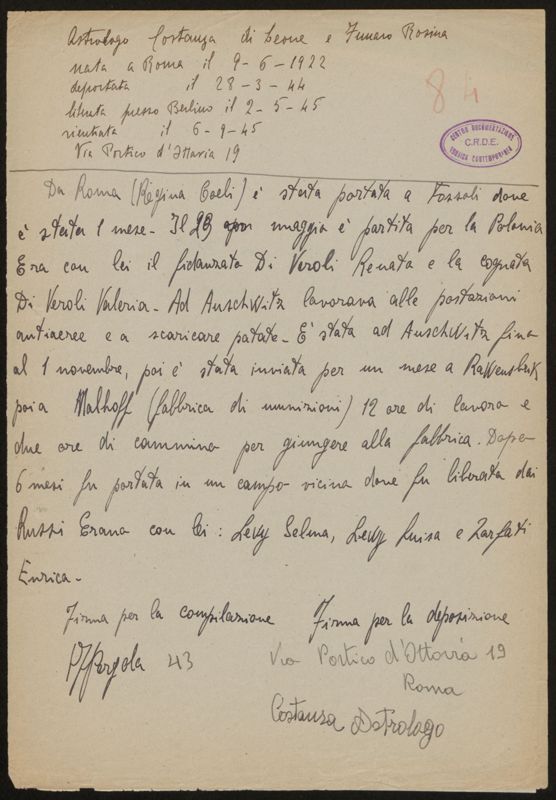 Astrologo Costanza di Leone e Funaro Rosina
nata a Roma il 9-6-1922
deportata il 28-3-44
liberata presso Berlino il 2-5-45
rientrata il 6-9-45
Via Portico d'Ottavia 19
84
CENTRO DOCUMENTAZIONE
C.R.D.E.
EBRAICA CONTEMPORANEA
Da Roma (Regina Coeli) è stata portata a Fossoli dove
è stata 1 mese - Il 29 maggio è partita per la Polonia
Era con lei il fidanzato Di Veroli Renato e la cognata
Di Veroli Valeria - Ad Auschwitz lavorava alle postazioni
antiaeree e a scaricare patate - E' stata ad Auschwitz fino
al 1 novembre, poi è stata inviata per un mese a Rawensbrük
poi a Malhoff (fabbrica di munizioni) 12 ore di lavoro e
due ore di cammino per giungere alla fabbrica. Dopo
6 mesi fu portata in un campo vicino dove fu liberata dai
Russi Erano con lei : Levy Selma, Levy Luisa e Zarfati
Enrica -
Firma per la compilazione Firma per la deposizione
Pergola 43 Via Portico d'Ottavia 19
Roma
Costanza Astrologo